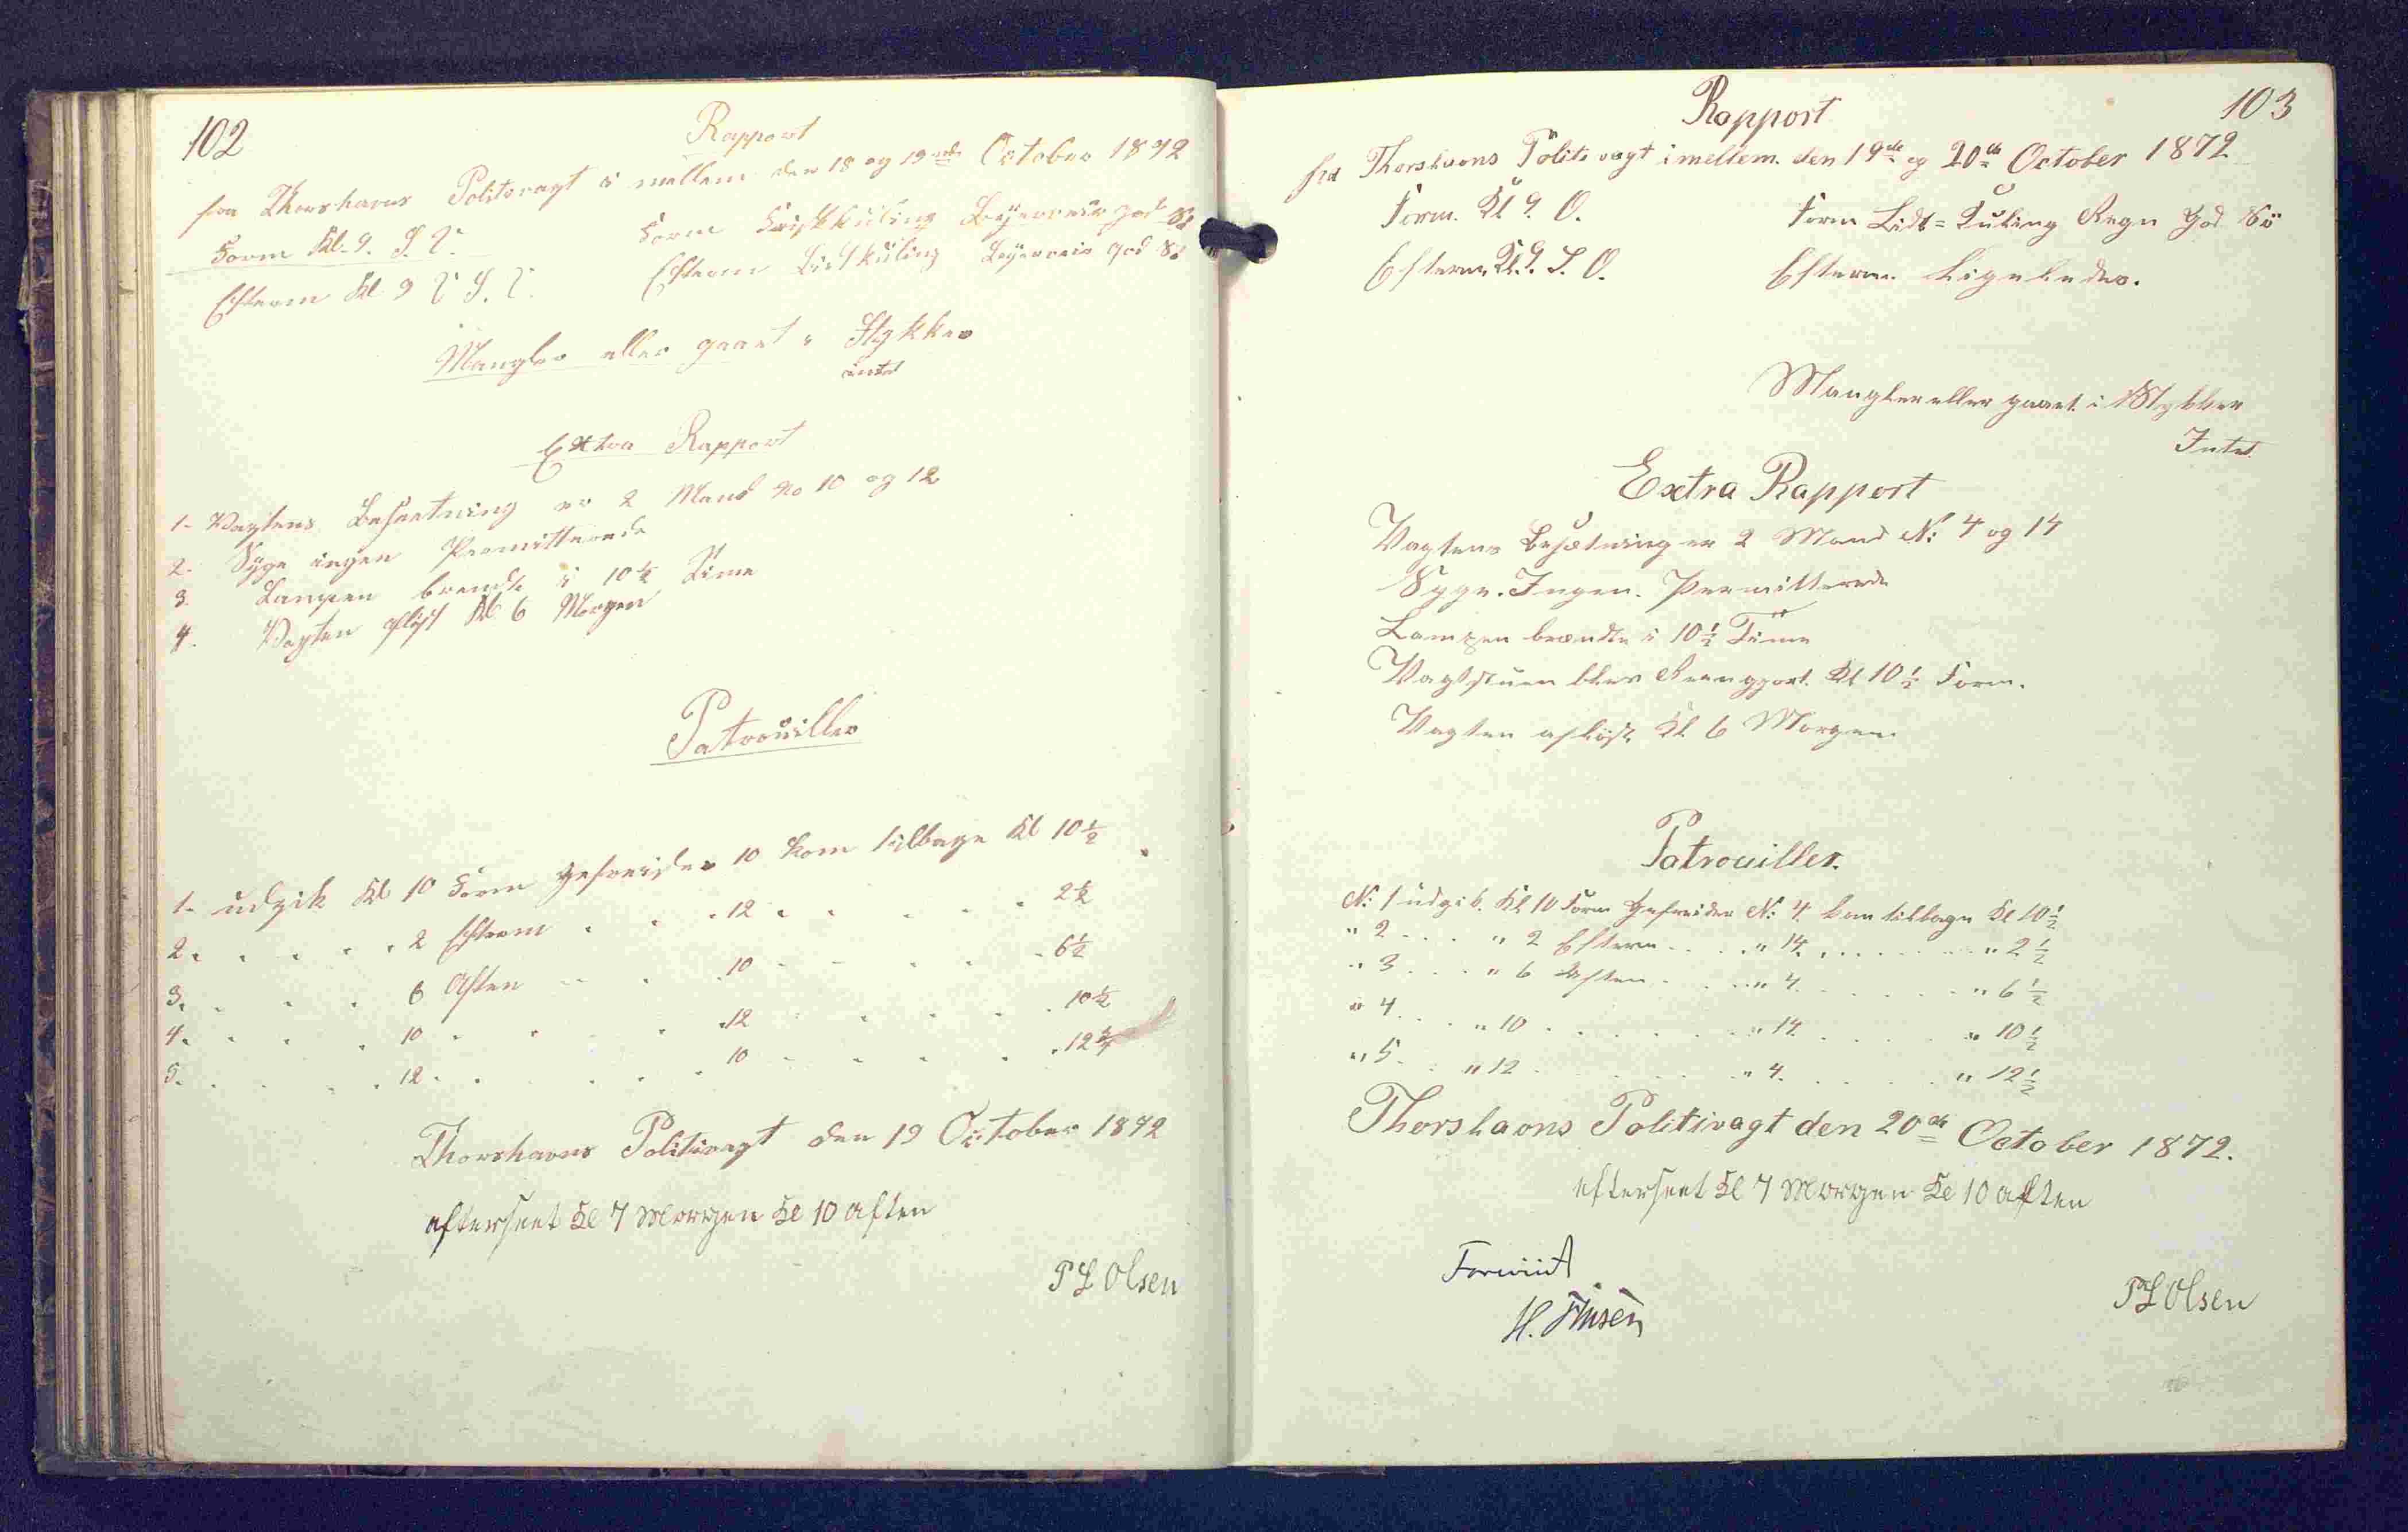 102
Rapport
fra Thorshavns Politivagt i mellem den 18 og 19de October 1872
Form Kl. 9. S. V. Form Friskkuling Bÿeveir god Sö
Efterm Kl 9 V S. V. Efterm Lidtkuling Bÿeveir god Sö
Mangler eller gaaet i Stykker
intet
Extra Rapport
1. Vagtens Besætning er 2 Mand No 10 og 12
2. Syge ingen Permitterede
3. Lampen brendte i 10 1/2 Time
4. Vagten aflöst Kl 6 Morgen
Patrouiller
1. udgik Kl 10 Form Gefreider 10 kom tilbage Kl 10 1/2
2. . . . . 2 Efterm . . . 12 . . . . . 2 1/2
3. . . . 6 Aften . . . 10 . . . . . 6 1/2
4. . . . . 10 . . . . 12 . . . . . 10 1/2
5. . . . . 12 . . . . . 10 . . . . . 12 3/4
Thorshavns Politivagt den 19 October 1872
efterseet Kl 7 Morgen Kl 10 aften
P L Olsen
103
Rapport
fra Thorshavns Politivagt imellem den 19de og 20de October 1872
Form. Kl 9. O. Form Lidt=Kuling Regn God Sö
Efterm. Kl. 9. S. O. Efterm. Ligeledes.
Mangler eller gaaet i Stykker
Intet.
Extra Rapport
Vagtens Besætning er 2 Mand No: 4 og 14
Syge. Ingen. Permitterede
Lampen brændte i 10 1/2 Time
Vagtstuen blev Reengjort Kl 10 1/2 Form.
Vagten aflöst Kl 6 Morgen
Patrouiller.
No: 1 udgik. Kl 10 Form Gefreider No: 4. kom tilbage Kl 10 1/2
" 2 . . . " 2 Efterm . . . " 14. . . . . . . " 2 1/2
" 3 . . . " 6 Aften . . . " 4. . . . . . " 6 1/2
" 4 . . . " 10 . . . . . . " 14. . . . . " 10 1/2
" 5 . . " 12 . . . . . . " 4. . . . . " 12 1/2
Thorshavns Politivagt den 20de October 1872.
efterseet Kl 7 Morgen Kl 10 aften
H. Finsen
P L Olsen